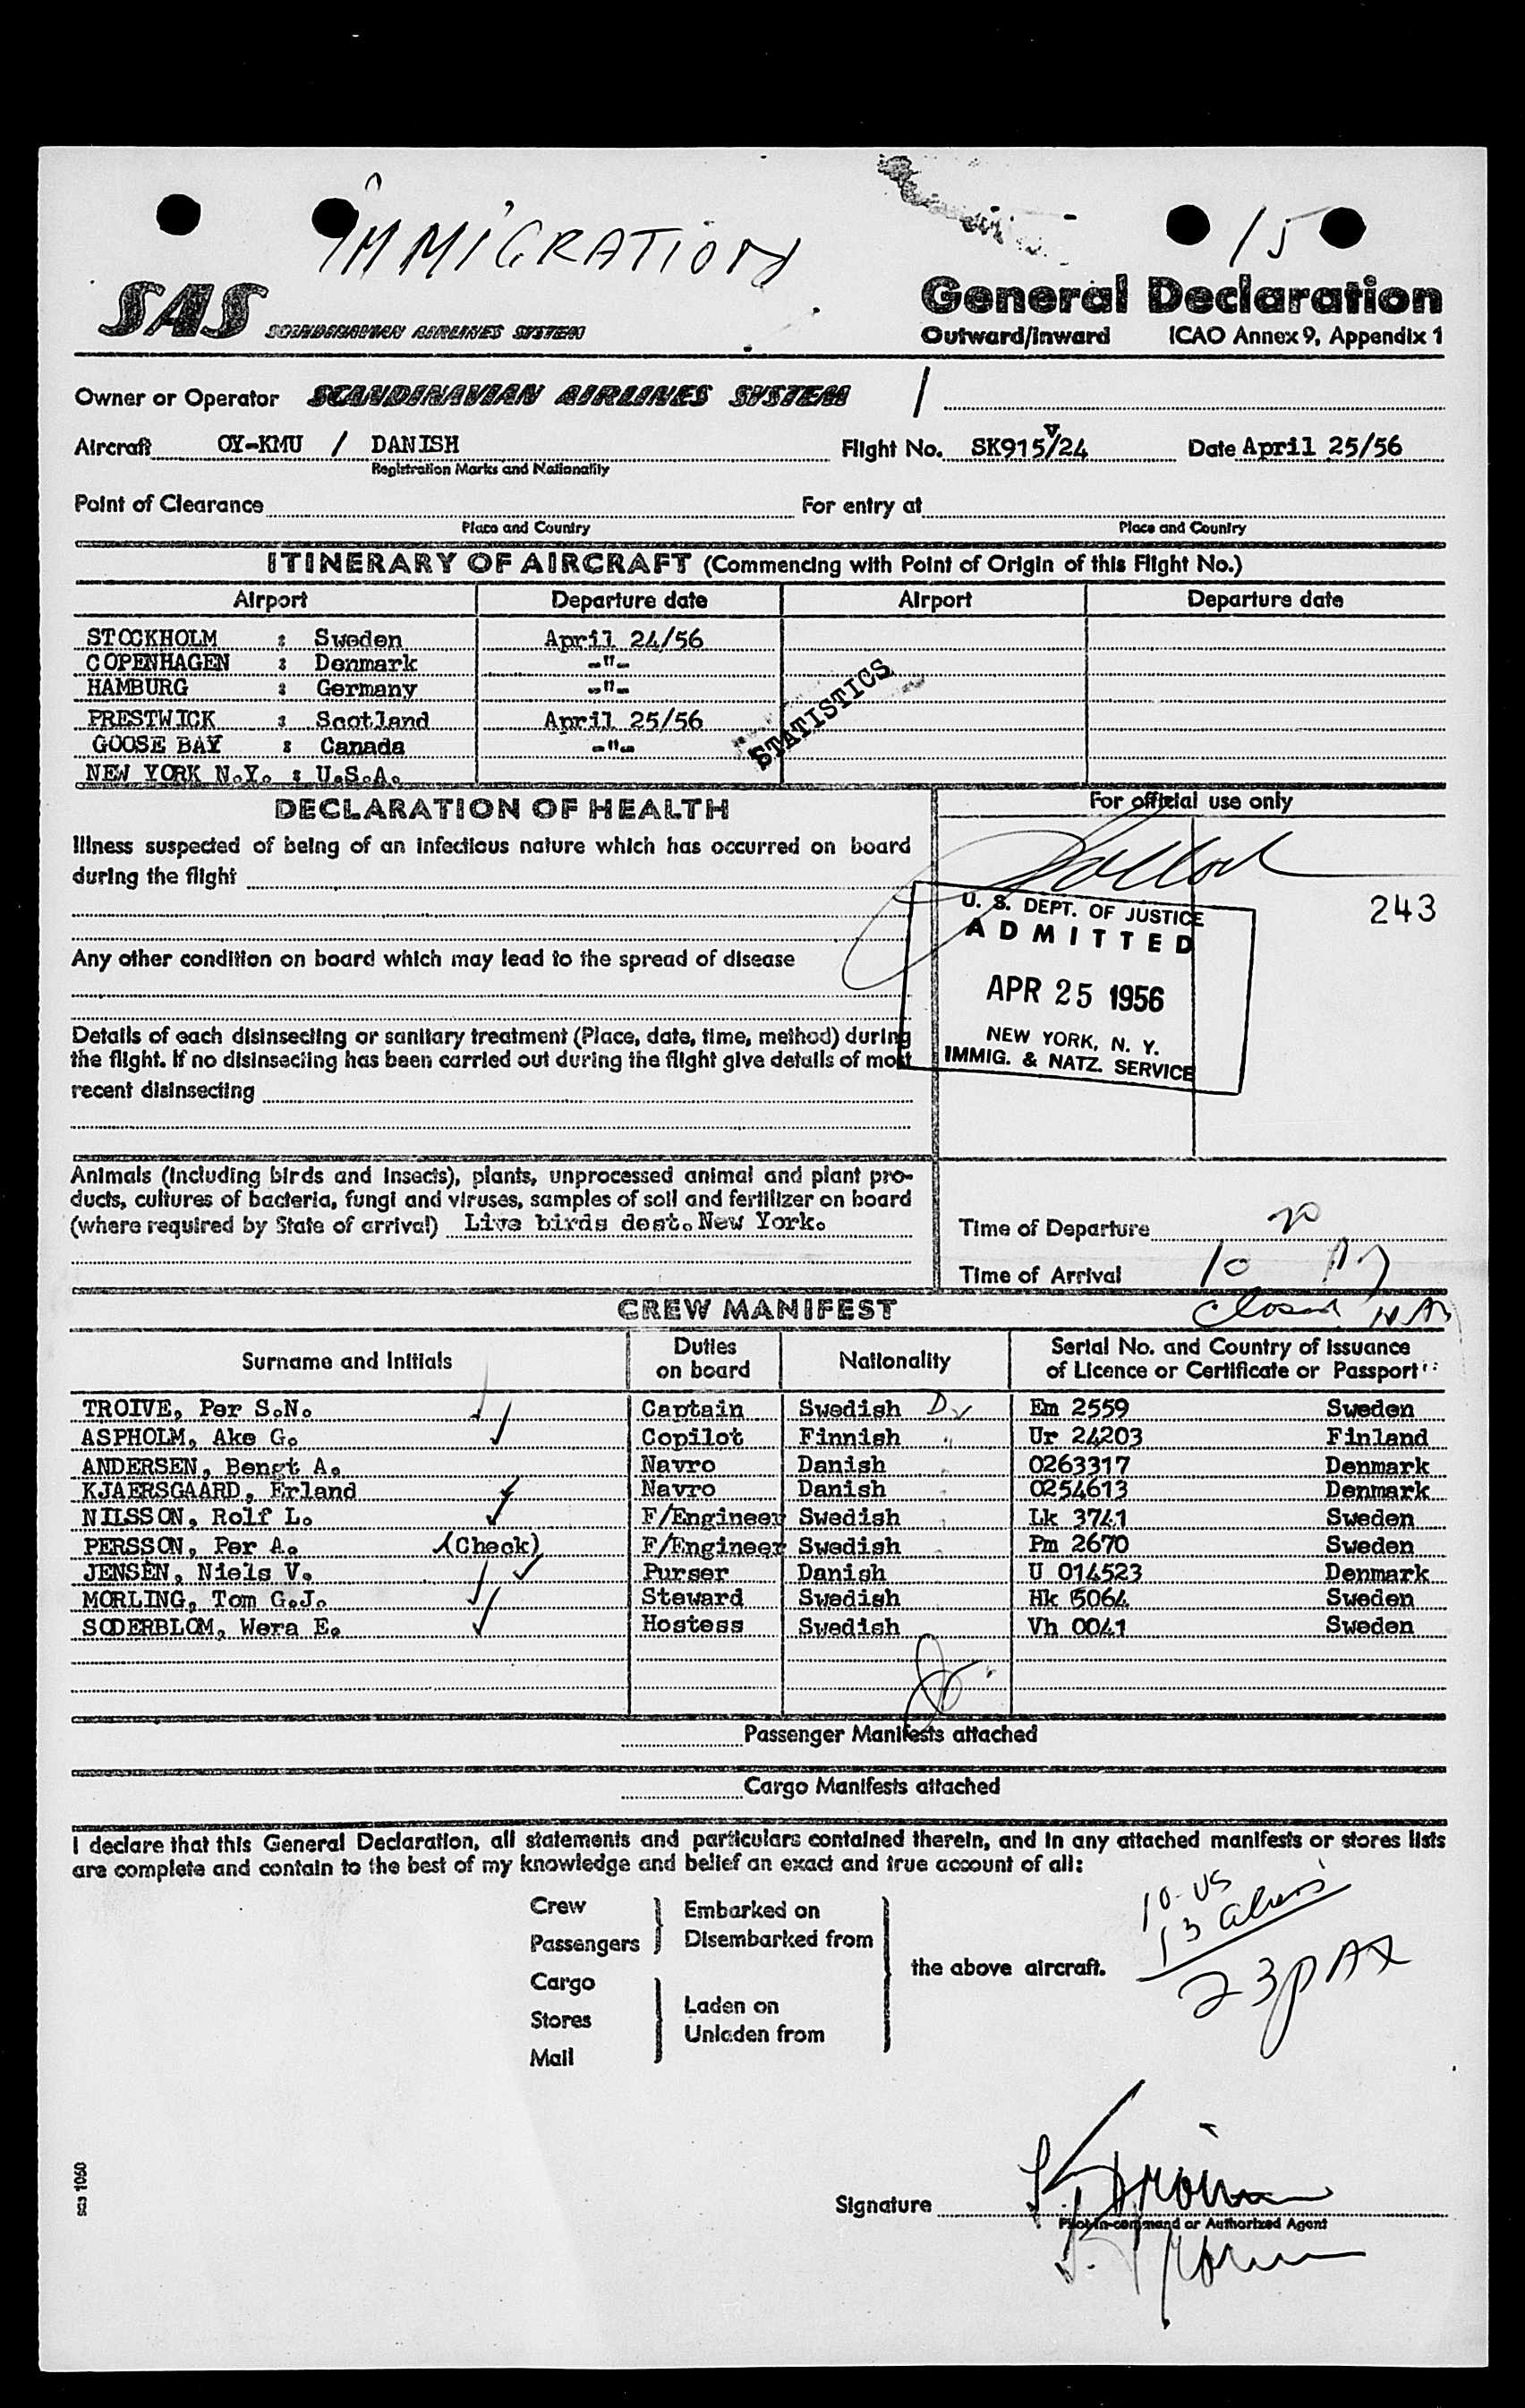 IMMIGRATION
15
SAS SCANDINAVIAN AIRLINES SYSTEM
General Declaration
Outward/Inward ICAO Annex 9, Appendix 1
Owner or Operator SCANDINAVIAN AIRLINES SYSTEM /
Aircraft OY-KMU / DANISH Flight No. SK915/24 Date April 25/56
Registration Marks and Nationality
Point of Clearance For entry at
Place and Country Place and Country
ITINERARY OF AIRCRAFT (Commencing with Point of Origin of this Flight No.)
Airport Departure date Airport Departure date
STOCKHOLM : Sweden April 24/56
COPENHAGEN : Denmark -"-
HAMBURG : Germany -"-
PRESTWICK : Scotland April 25/56
GOOSE BAY : Canada -"-
NEW YORK N.Y. : U.S.A.
STATISTICS
DECLARATION OF HEALTH
Illness suspected of being of an infectious nature which has occurred on board
during the flight
Any other condition on board which may lead to the spread of disease
Details of each disinsecting or sanitary treatment (Place, date, time, method) during
the flight. If no disinsecting has been carried out during the flight give details of most
recent disinsecting
Animals (including birds and insects), plants, unprocessed animal and plant pro-
ducts, cultures of bacteria, fungi and viruses, samples of soil and fertilizer on board
(where required by State of arrival) Live birds dest. New York.
For official use only
243
U. S. DEPT. OF JUSTICE
ADMITTED
APR 25 1956
NEW YORK, N. Y.
IMMIG. & NATZ. SERVICE
Time of Departure
Time of Arrival 10
Closed
CREW MANIFEST
Surname and Initials Duties on board Nationality Serial No. and Country of Issuance of Licence or Certificate or Passport
TROIVE, Per S.N. Captain Swedish Em 2559 Sweden
ASPHOLM, Ake G. Copilot Finnish Ur 24203 Finland
ANDERSEN, Bengt A. Navro Danish 0263317 Denmark
KJAERSGAARD, Erland Navro Danish 0254613 Denmark
NILSSON, Rolf L. F/Engineer Swedish Lk 3741 Sweden
PERSSON, Per A. (Check) F/Engineer Swedish Pm 2670 Sweden
JENSEN, Niels V. Purser Danish U 014523 Denmark
MORLING, Tom G.J. Steward Swedish Hk 5064 Sweden
SODERBLOM, Wera E. Hostess Swedish Vh 0041 Sweden
Passenger Manifests attached
Cargo Manifests attached
I declare that this General Declaration, all statements and particulars contained therein, and in any attached manifests or stores lists
are complete and contain to the best of my knowledge and belief an exact and true account of all:
Crew
Passengers
Cargo
Stores
Mail
Embarked on
Disembarked from
Laden on
Unladen from
the above aircraft.
10 US
13 aliens
23 PAX
Signature
Pilot-in-command or Authorized Agent
scs 1050